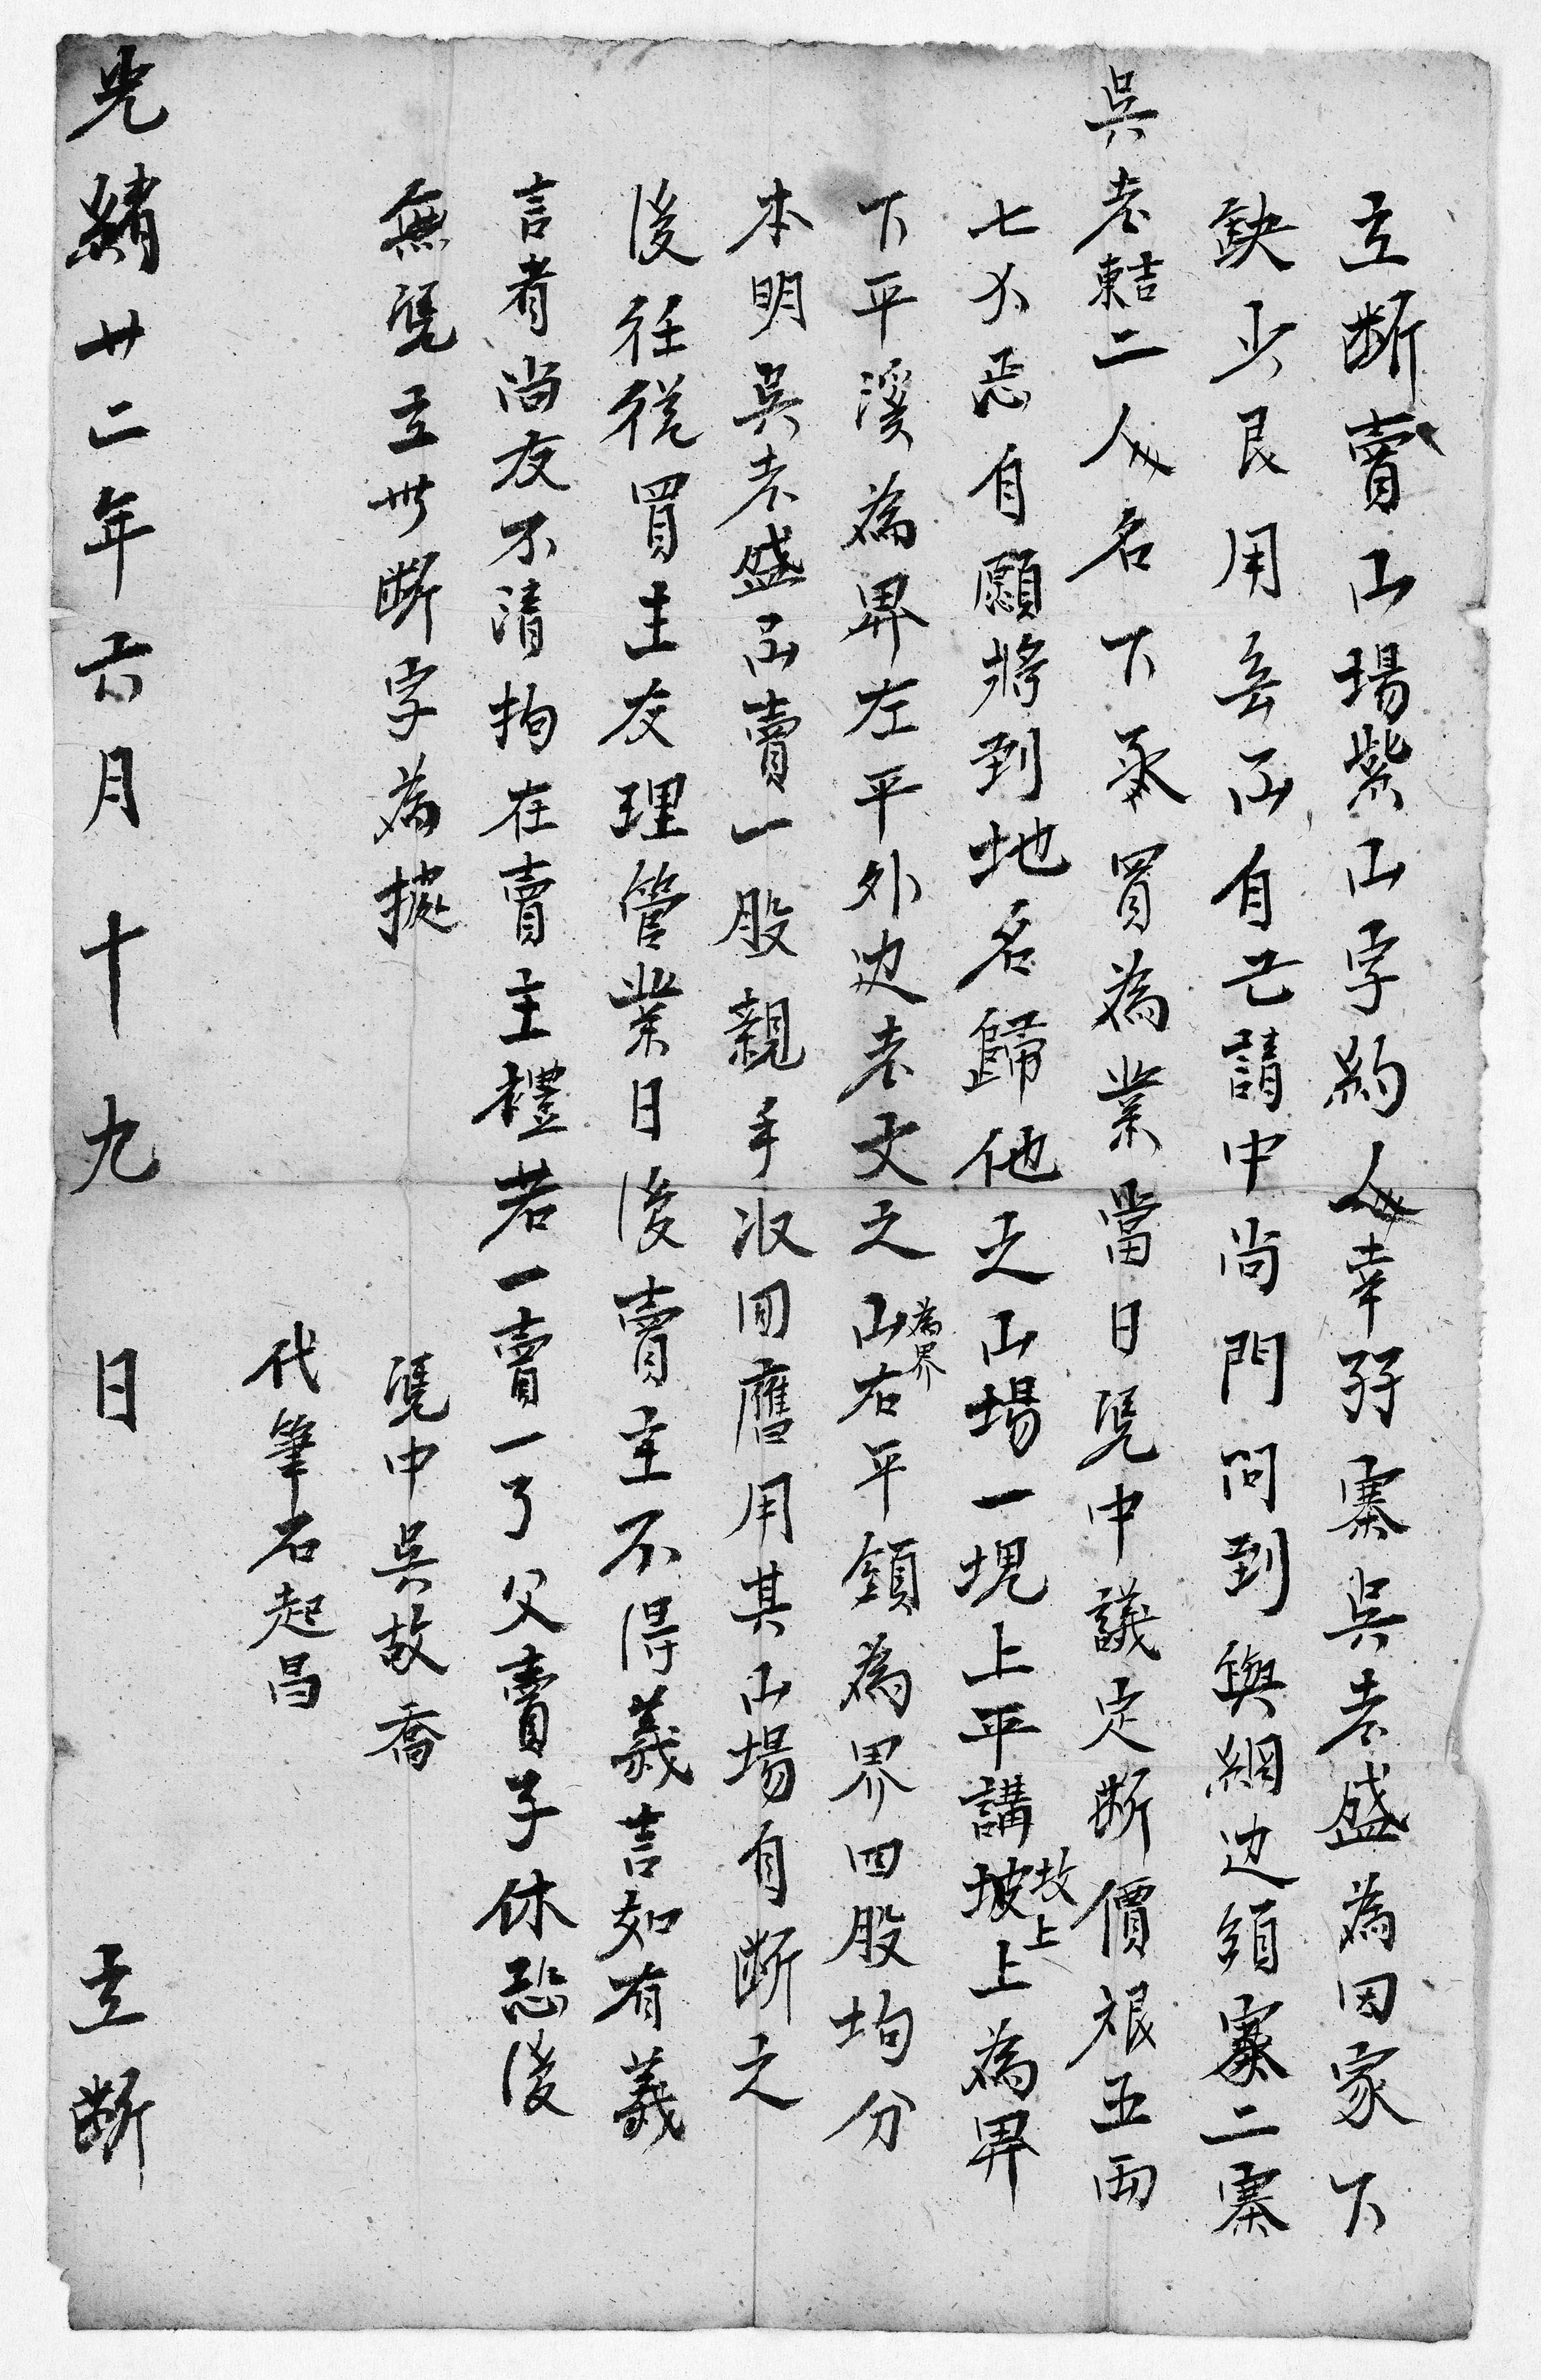 立断賣山場紫山字約人幸孖寨吳老盛為因家下
缺少艮用無出自己請中尚門問到與網边領寨二寨
吳老東吉二人名下承買為業當日凴中議定断價艮五両
七分恁自願將到地名歸他之山場一塊上平講坡故上上為界
下平溪為界左平外边老文之山為界右平領為界四股均分
本明吳老盛出賣一股親手収囬應用其山場自断之
後任從買主友理管業日後賣主不得義言如有義
言者尚友不清拘在賣主禮若一賣一了父賣子休恐後
無凴立此断字為據
凴中吳故喬
代筆石起昌
光緒廿二年六月十九日立断